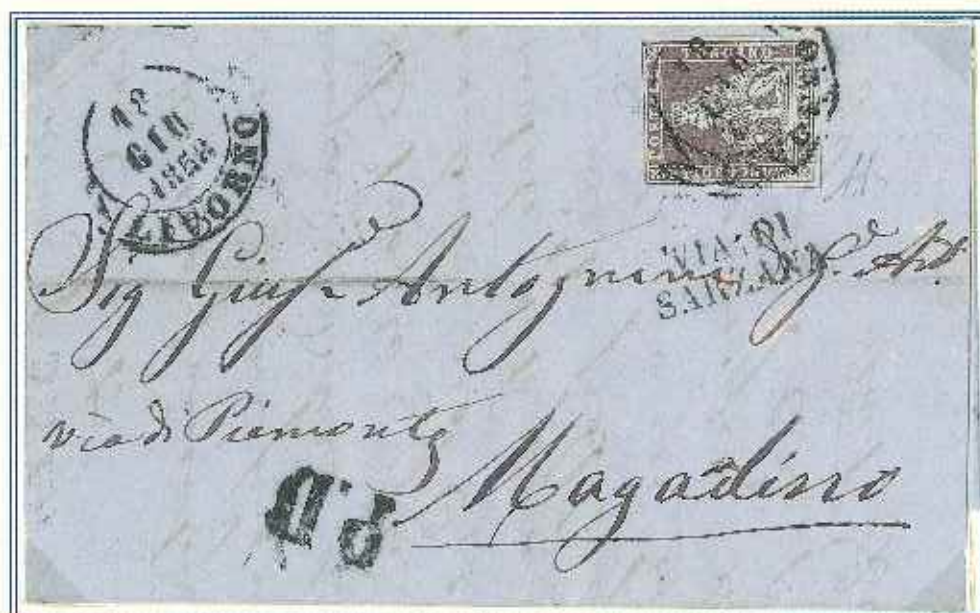 12
GIU
1858
LIVORNO
VIA DI
SARZANA
Sig Gius.e Antognini q.e Ant
via di Piemonte
P.D.
Magadino